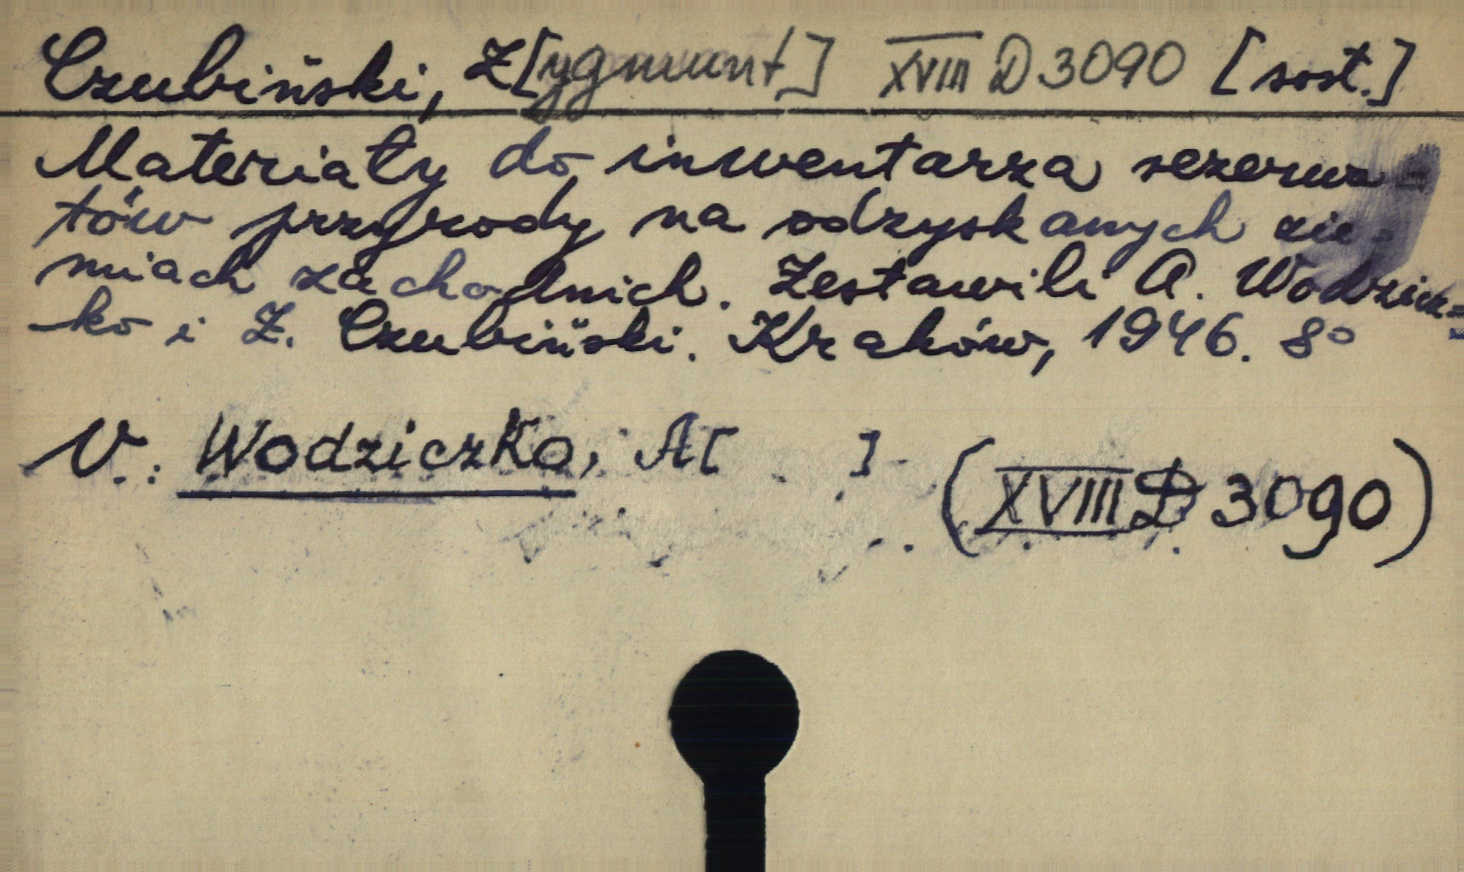 Czubiński, Z[ygmunt] XVIII D 3090 [sost.]
Materiały do inwentarza rezerwa-
tów przyrody na odzyskanych zie-
miach zachodnich. Zestawili A. Wodzicz-
ko i Z. Czubiński. Kraków, 1946. 8°
V.: Wodziczko, A[ ]
(XVIII D 3090)